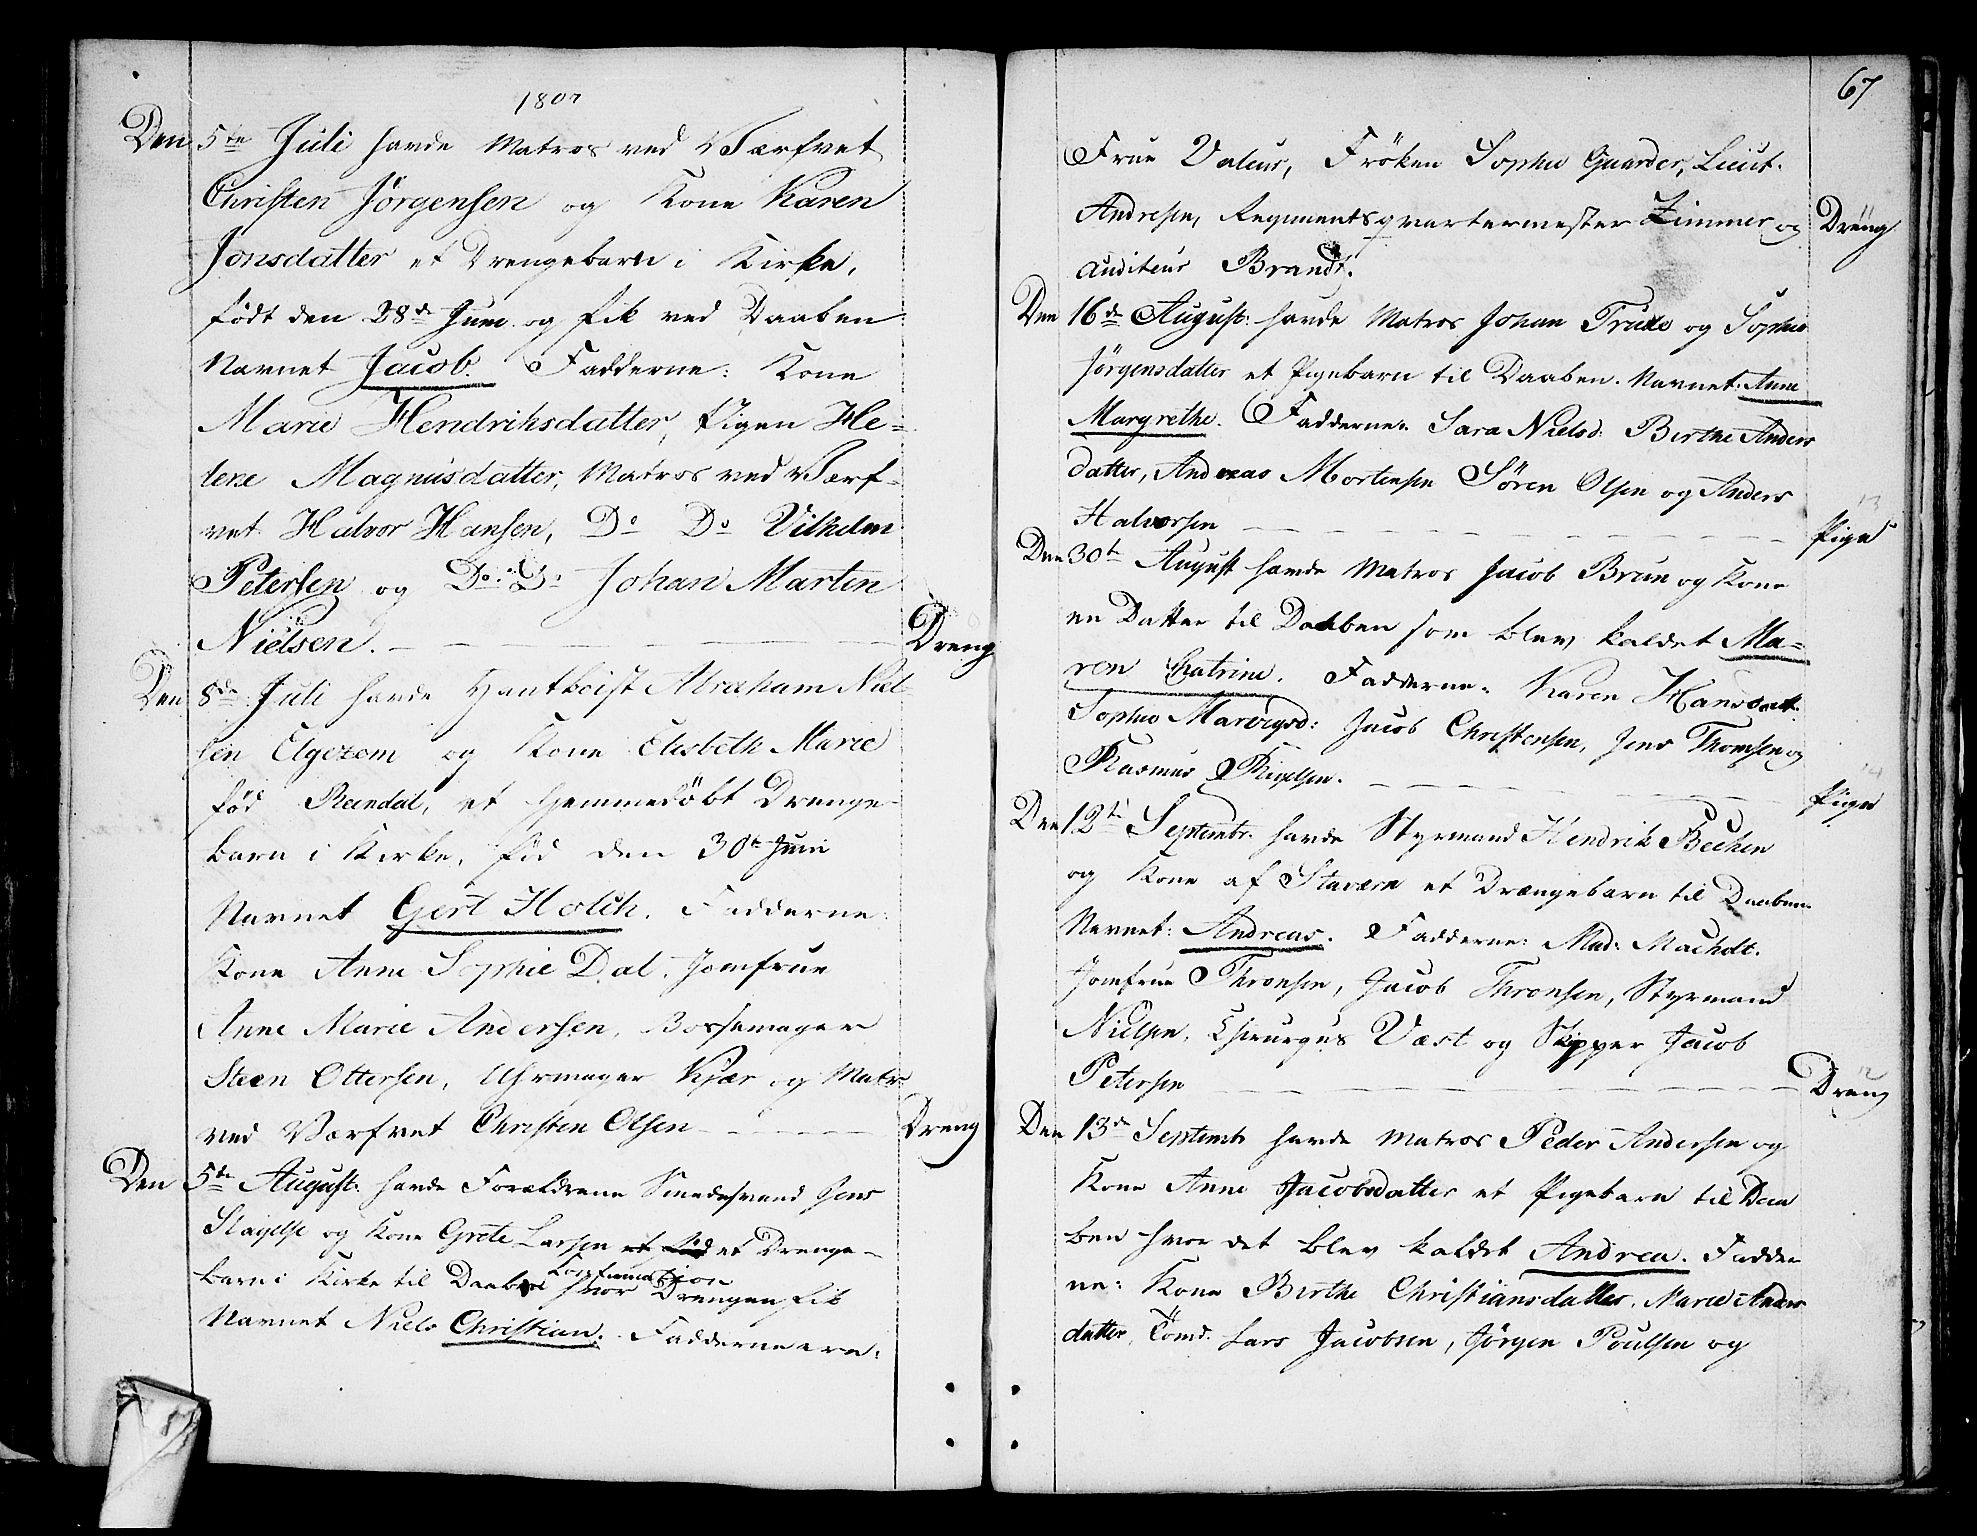 1807
Den 5te Juli havde Matros ved Værfvet
Christen Jörgensen og Kone Karen
Jonsdatter et Drengebarn i Kirke,
födt den 28de Juni og fik ved Daaben
Navnet Jacob. Fadderne: Kone
Marie Hendriksdatter, Pigen He=
lene Magnusdatter, Matros ved Værf-
vet Halvor Hansen, Do Do Vilhelm
Petersen og Do: Do Johan Marten
Nielsen. Dreng
Den 8de Juli havde Hautboist Abraham Niel
sen Elgezem og Kone Elisbeth Marie
föd Reindal, et hjemmedöbt Drenge-
barn i Kirke, föd den 30te Juni
Navnet Gert Holch. Fadderne:
Kone Anne Sophie Dal. Jomfrue
Anne Marie Andersen, Bössemager
Steen Ottersen, Uhrmager Kjær og Matr
ved Værfvet Christen Olsen Dreng
Den 5te August: havde Forældrene Smedesvend Jens
Slagelse og Kone Grete Larsen et Drenge-
barn i Kirke til
hvor Drengen fik
Navnet Niels Christian. Fadderne ere:
67
Frue Valeur, Fröken Sophie Gaarder, Lieut.
Andresen, Regimentsqvartermester Zimmer og Dreng
Auditeur Brandt.
Den 16de August: havde Matros Johan Truxe og Sophie
Jörgensdatter et Pigebarn til Daaben. Navnet: Anne
Margrethe. Fadderne: Sara Nielsd: Birthe Anders
datter, Andreas Mortensen Sören Olsen og Anders
13
Halvorsen Pige
Den 30te August havde Matros Jacob Brun og Kone
en Datter til Daaben som blev kaldet Ma=
ren Chatrine. Fadderne: Karen Hansdatt:
Sophie Jacob Christensen, Jens Thomsen og
14
Rasmus Pige
Den 12te Septembr. havde Styrmand Hendrik Bechen
og Kone af Staværn et Drængebarn til Daaben
Navnet: Andreas. Fadderne: Mad: Machdt.
Jomfrue Thronsen, Jacob Thronsen, Styrmand
Nielsen, Chirurgus Væst og Skipper Jacob
12
Petersen Dreng
Den 13de Septembr havde Matros Peder Andersen og
Kone Anne Jacobsdatter et Pigebarn til Daa
ben hvor det blev kaldet Andrea. Fadder
ne: Kone Birthe Christiansdatter, Marie Anders
datter, Tömd. Lars Jacobsen, Jörgen Poulsen og